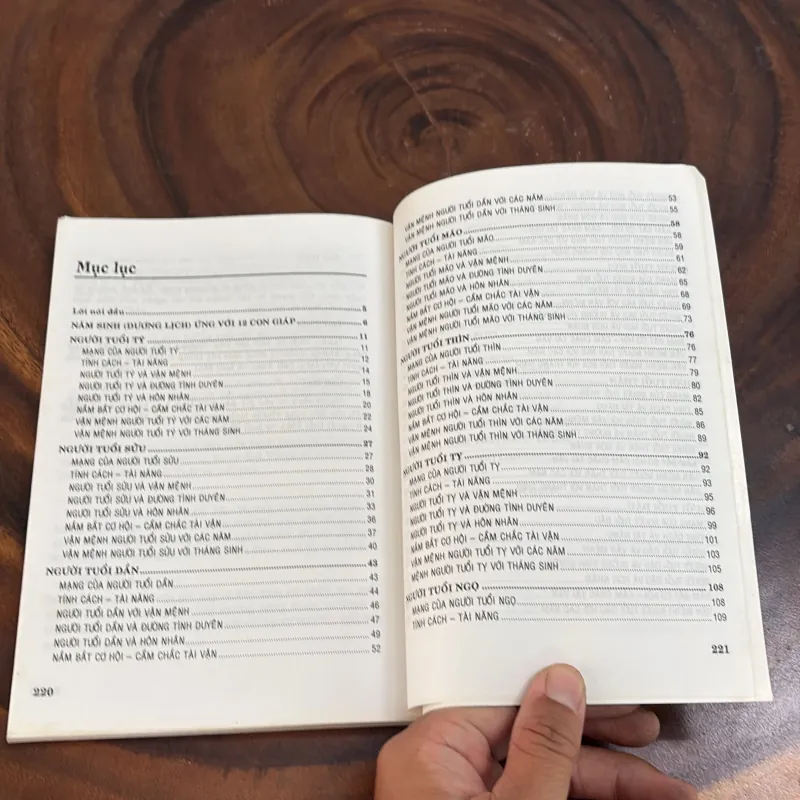 Mục lục
Lời nói đầu ........ 5
NĂM SINH (DƯƠNG LỊCH) ỨNG VỚI 12 CON GIÁP ........ 6
NGƯỜI TUỔI TÝ ........ 11
MẠNG CỦA NGƯỜI TUỔI TÝ ........ 11
TÍNH CÁCH – TÀI NĂNG ........ 12
NGƯỜI TUỔI TÝ VÀ VẬN MỆNH ........ 14
NGƯỜI TUỔI TÝ VÀ ĐƯỜNG TÌNH DUYÊN ........ 15
NGƯỜI TUỔI TÝ VÀ HÔN NHÂN ........ 18
NẮM BẮT CƠ HỘI – CẦM CHẮC TÀI VẬN ........ 20
VẬN MỆNH NGƯỜI TUỔI TÝ VỚI CÁC NĂM ........ 22
VẬN MỆNH NGƯỜI TUỔI TÝ VỚI THÁNG SINH ........ 24
NGƯỜI TUỔI SỬU ........ 27
MẠNG CỦA NGƯỜI TUỔI SỬU ........ 27
TÍNH CÁCH – TÀI NĂNG ........ 28
NGƯỜI TUỔI SỬU VÀ VẬN MỆNH ........ 30
NGƯỜI TUỔI SỬU VÀ ĐƯỜNG TÌNH DUYÊN ........ 31
NGƯỜI TUỔI SỬU VÀ HÔN NHÂN ........ 33
NẮM BẮT CƠ HỘI – CẦM CHẮC TÀI VẬN ........ 36
VẬN MỆNH NGƯỜI TUỔI SỬU VỚI CÁC NĂM ........ 37
VẬN MỆNH NGƯỜI TUỔI SỬU VỚI THÁNG SINH ........ 40
NGƯỜI TUỔI DẦN ........ 43
MẠNG CỦA NGƯỜI TUỔI DẦN ........ 43
TÍNH CÁCH – TÀI NĂNG ........ 44
NGƯỜI TUỔI DẦN VỚI VẬN MỆNH ........ 46
NGƯỜI TUỔI DẦN VÀ ĐƯỜNG TÌNH DUYÊN ........ 47
NGƯỜI TUỔI DẦN VÀ HÔN NHÂN ........ 49
NẮM BẮT CƠ HỘI – CẦM CHẮC TÀI VẬN ........ 52
220
VẬN MỆNH NGƯỜI TUỔI DẦN VỚI CÁC NĂM ........ 53
VẬN MỆNH NGƯỜI TUỔI DẦN VỚI THÁNG SINH ........ 55
NGƯỜI TUỔI MÃO ........ 58
MẠNG CỦA NGƯỜI TUỔI MÃO ........ 58
TÍNH CÁCH – TÀI NĂNG ........ 59
NGƯỜI TUỔI MÃO VÀ VẬN MỆNH ........ 61
NGƯỜI TUỔI MÃO VÀ ĐƯỜNG TÌNH DUYÊN ........ 62
NGƯỜI TUỔI MÃO VÀ HÔN NHÂN ........ 65
NẮM BẮT CƠ HỘI – CẦM CHẮC TÀI VẬN ........ 68
VẬN MỆNH NGƯỜI TUỔI MÃO VỚI CÁC NĂM ........ 69
VẬN MỆNH NGƯỜI TUỔI MÃO VỚI THÁNG SINH ........ 73
NGƯỜI TUỔI THÌN ........ 76
MẠNG CỦA NGƯỜI TUỔI THÌN ........ 76
TÍNH CÁCH – TÀI NĂNG ........ 77
NGƯỜI TUỔI THÌN VÀ VẬN MỆNH ........ 79
NGƯỜI TUỔI THÌN VÀ ĐƯỜNG TÌNH DUYÊN ........ 80
NGƯỜI TUỔI THÌN VÀ HÔN NHÂN ........ 82
NẮM BẮT CƠ HỘI – CẦM CHẮC TÀI VẬN ........ 85
VẬN MỆNH NGƯỜI TUỔI THÌN VỚI CÁC NĂM ........ 86
VẬN MỆNH NGƯỜI TUỔI THÌN VỚI THÁNG SINH ........ 89
NGƯỜI TUỔI TỴ ........ 92
MẠNG CỦA NGƯỜI TUỔI TỴ ........ 92
TÍNH CÁCH – TÀI NĂNG ........ 93
NGƯỜI TUỔI TỴ VÀ VẬN MỆNH ........ 95
NGƯỜI TUỔI TỴ VÀ ĐƯỜNG TÌNH DUYÊN ........ 96
NGƯỜI TUỔI TỴ VÀ HÔN NHÂN ........ 99
NẮM BẮT CƠ HỘI – CẦM CHẮC TÀI VẬN ........ 101
VẬN MỆNH NGƯỜI TUỔI TỴ VỚI CÁC NĂM ........ 103
MỆNH NGƯỜI TUỔI TỴ VỚI THÁNG SINH ........ 105
NGƯỜI TUỔI NGỌ ........ 108
MẠNG CỦA NGƯỜI TUỔI NGỌ ........ 108
TÍNH CÁCH – TÀI NĂNG ........ 109
221